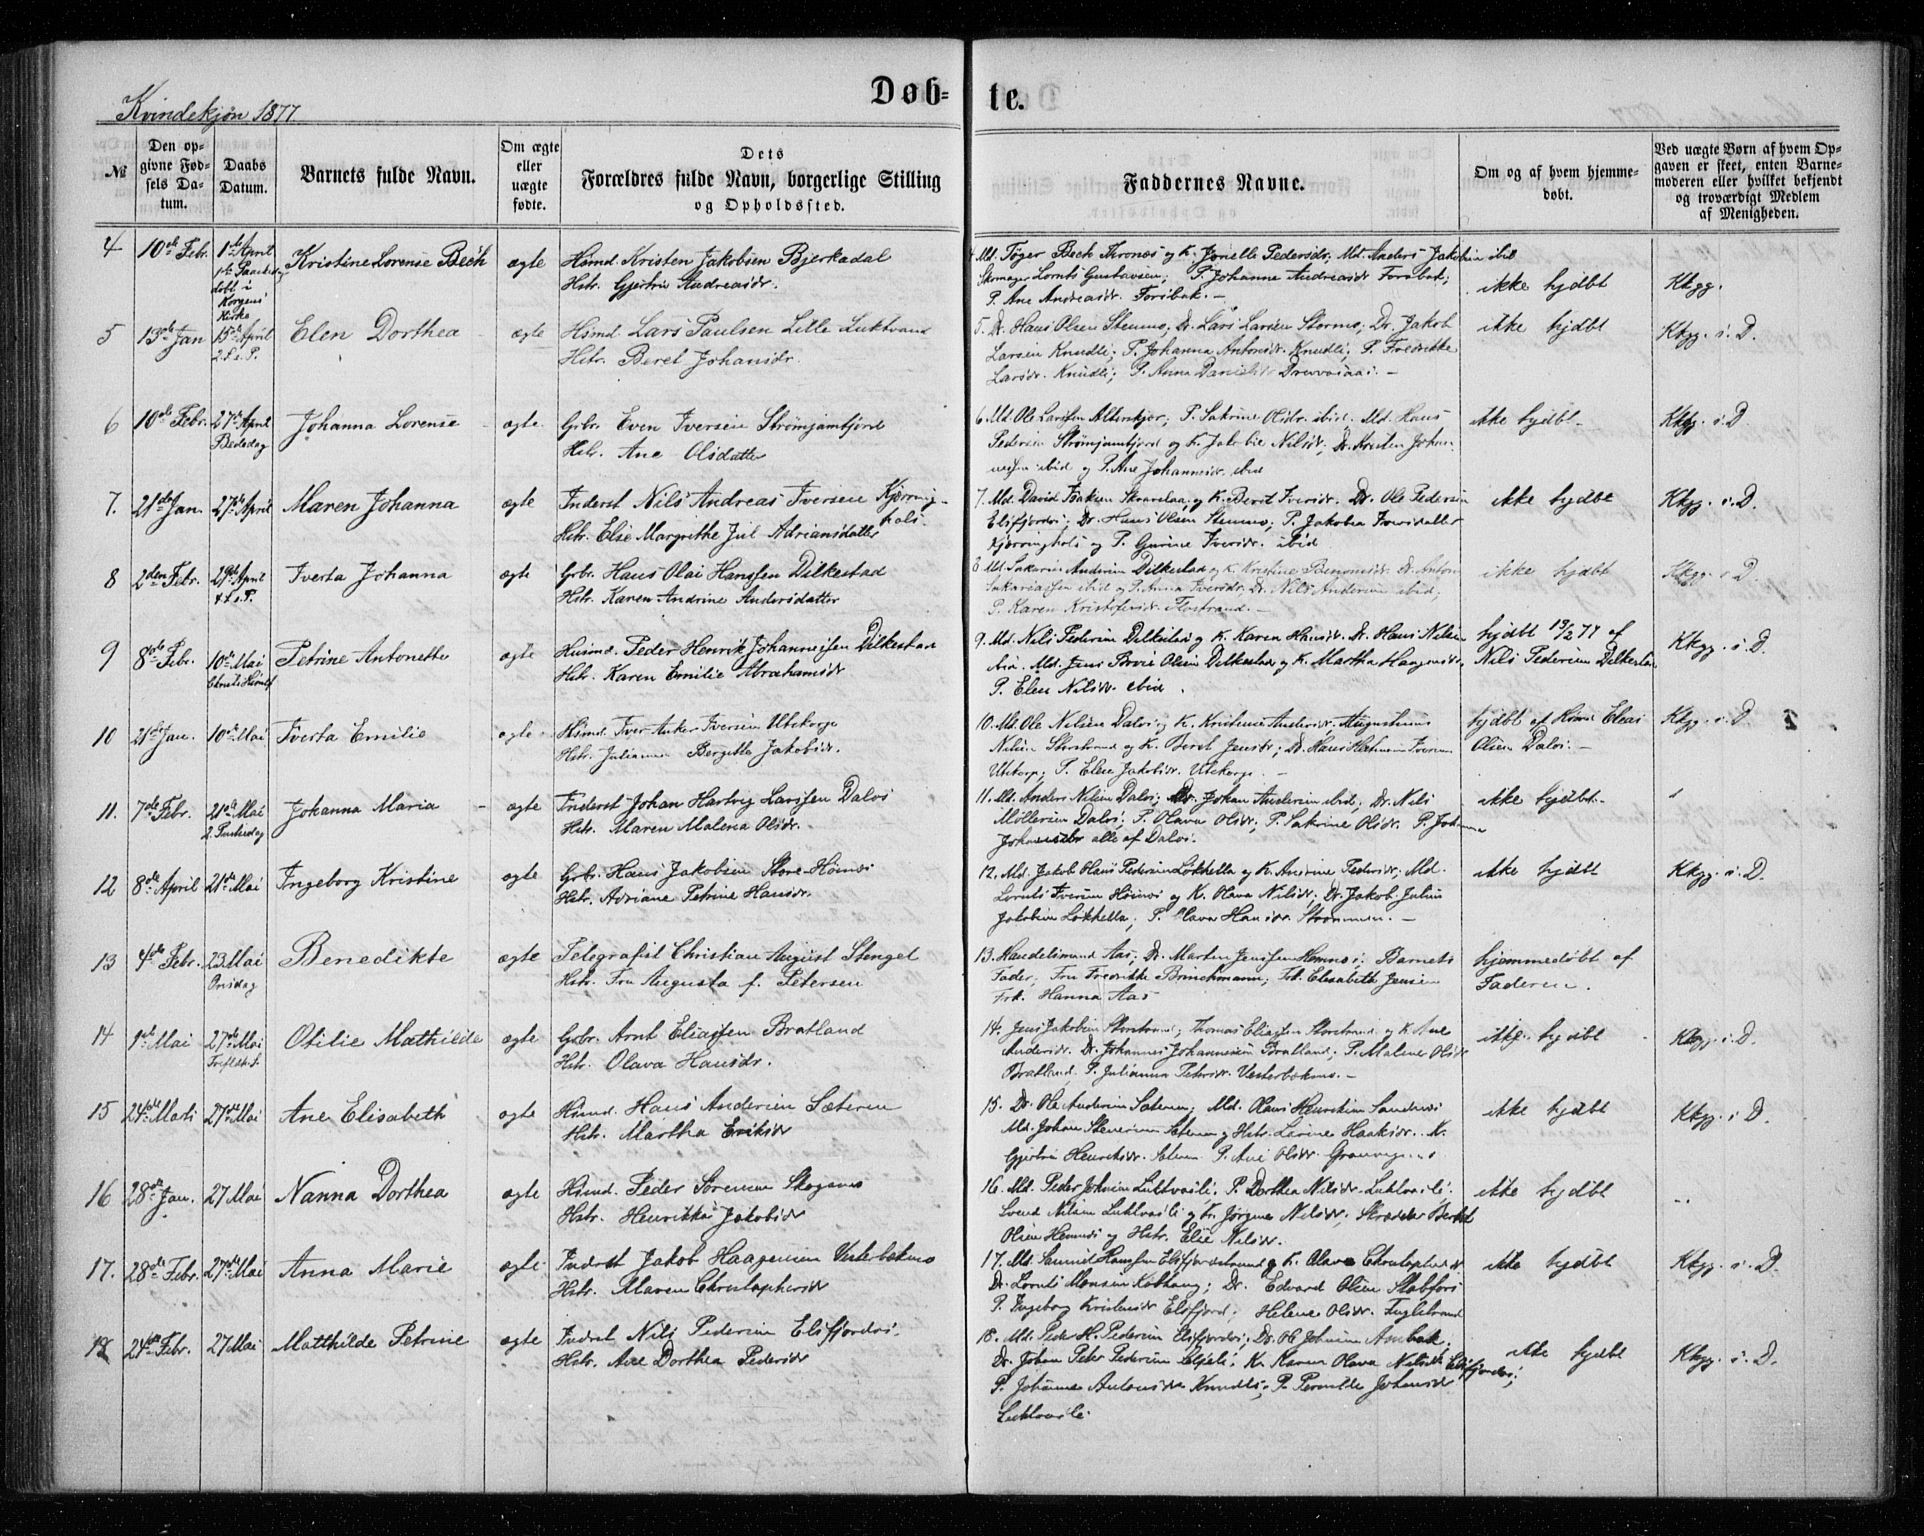 Kvindekjøn 1877
Døb-
te.
№
Den op-
givne Fød-
sels Da-
tum.
Daabs
Datum.
Barnets fulde Navn.
Om ægte
eller
uægte
fødte.
Dets
Forældres fulde Navn, borgerlige Stilling
og Opholdssted.
Faddernes Navne.
Om og af hvem hjemme-
døbt.
Ved uægte Børn af hvem Op-
gaven er skeet, enten Barne-
moderen eller hvilket bekjendt
og troværdigt Medlem
af Menigheden.
4 10de Febr. 1ste April
1ste Paaskedag
døbt i
Korgens
Kirke
Kristine Lorense Bech ægte
Hsmd. Kristen Jakobsen Bjerkadal
Hstr. Gjertru Andreasdr.
4. Md. Tøger Bech Kronæs og K. Jonelle Pedersdr, Md. Anders Jakobsen ibd
Lornts Gustavsen; P. Johanne Andreasdr Forsbak;
P. Ane Andreasdr. Forsbak. –
ikke hjdbt
Kkgg.
5 13de Jan 15de April
2. S. e. P.
Elen Dorthea ægte
Hsmd. Lars Paulsen Lille Luktvand
Hstr. Beret Johansdr.
5. Dr. Hans Olsen Stenmo; Dr. Lars Larsen Stormo; Dr. Jakob
Larsen Knudli; P. Johanna Antonsdr. Knudli; P. Fredrikke
Larsdr. Knudli; P. Anna Danielsdr Drevvasaas. –
ikke hjdbt
Kkgg. s. D.
6 10de Febr. 27de April
Bededag
Johanna Lorense ægte
Grbr. Even Iversen Strømjamtfjord
Hstr. Ane Olsdatter
6. Md. Ole Larssen Alterskjær; P. Sakrine Olsdr. ibid. Md. Hans
Pedersen Strømjamtfjord og K. Jakobie Nilsdr; Dr. Kristen Johan-
nessen ibid og P. Ane Johannesdr. ibid
ikke hjdbt.
Kkgg. s. D
7. 21de Jan. 27de April Maren Johanna ægte
Inderst Nils Andreas Iversen Kjerring-
hals.
Hstr. Else Margrethe Jul Adriansdatter
7. Md. David Isaksen Skravlaa, og K. Beret Iversdr. Dr. Ole Pedersen
Elsfjordøs; Dr. Hans Olsen Stenmo; P. Jakobea Iversdatter
Kjerringhals og P. Gurine Iversdr. ibid
ikke hjdbt
Kkgg. s. D.
8 2den Febr. 29de April
4. S. e. P.
Iversta Johanna ægte
Grbr. Hans Olai Hanssen Dilkestad
Hstr. Karen Andrine Andersdatter
8. Md. Sakarias Andersen Dilkestad og K. Kristine Benonisdr. Dr. Anton
Sakariassen ibid og P. Anna Iversdr. Dr. Nils Andersen ibid;
P. Karen Kristofersdr. Flostrand. –
ikke hjdbt
Kkgg. s. D.
9 8de Febr. 10de Mai
Christi Himlf
Petrine Antonette ægte
Husmd. Peder Henrik Johannessen Dilkestad
Hstr. Karen Emilie Abrahamsdr
9. Md. Nils Pedersen Dilkestad og K. Karen Hansdr. Dr. Hans Nilsen
Md. Jens Bovie Olsen Dilkestad og K. Martha Haagensdr,
P. Elen Nilsdr. ibid.
hjdbt 19/2 77 af
Nils Pedersen Dilkestad
Kkgg. s. D.
10 21de Jan. 10de Mai Iversta Emilie ægte
Hsmd. Iver Anker Iversen Utskarpe
Hstr. Julianna Bergitte Jakobsdr.
10. Md Ole Nilsen Dalos og K. Kristense Andersdr, Augustinus
Nilsen Storstrand og K. Beret Jensdr; Dr. Hans Hartman Iversen
Utskarp; P. Elen Jakobsdr. Utskarpe. –
hjdbt af Hsmd Elias
Olsen Dalos. –
Kkgg. s. D.
11. 7de Febr. 21de Mai
2 Pintsedag
Johanna Maria – ægte
Inderst Johan Hartvig Larssen Dalos
Hstr. Maren Malena Olsdr.
11. Md. Anders Nilsen Dalos; Dr. Johan Andersen ibid, Dr. Nils
Møllersen Dalos; P. Olava Olsdr; P. Sakrine Olsdr. P. Johanna
Johansdr alle af Dalos.
ikke hjdbt.
12 8de April 21de Mai Ingeborg Kristine ægte
Grbr. Hans Jakobsen Store-Høines
Hstr. Adriane Petrine Hansdr.
12. Md. Jakob Hans Pedersen Løkhella og K. Andrine Pedersdr; Md.
Lornts Iversen Høines og K. Olava Nilsdr; Dr. Jakob Julius
Jakobsen Løkhella; P. Olava Hansdr Strømmen. –
ikke hjdbt
Kkgg. s. D.
13 4de Febr. 23 Mai
Onsdag
Benedikte ægte
Telegrafist Christian August Stengel
Hstr. Fru Augusta f. Petersen
13. Handelsmand Aas; Dr. Morten Jenssen Hemnes; Barnets
Fader, Fru Fredrikke Brinchmann; Frk. Elisabeth Jensen
Frk. Hanna Aas
hjemmedøbt af
Faderen.
14 1ste Mai 27de Mai
Trefldsts.
Otilie Mathilde ægte
Grbr. Arnt Eliassen Bratland
Hstr. Olava Hansdr.
14. Jens Jakobsen Storstrand; Thomas Eliassen Storstrand og K. Ane
Andersdr. Dr. Johannes Johannessen Bratland; P. Maline Olsdr
Bratland; P. Julianna Petersdr. Vesterbækmo. –
ikke hjdbt
Kkgg. s. D.
15 24de Marts 27de Mai Ane Elisabeth ægte
Hsmd. Hans Andersen Sæteren
Hstr. Martha Eriksdr
15. Dr. Ole Andersen Sæteren; Md. Olaus Henriksen Sandnes
Md. Johan Stenersen Sæteren og Hstr. Lavine Haaksdr. K.
Gjertru Henriksdr. Sæteren P. Ane Olsdr.
ikke hjdbt
Kkgg. s. D.
16 28de Jan. 27 Mai Nanna Dorthea ægte
Hsmd. Peder Sørensen Skogmo
Hstr. Henrikka Jakobsdr
16. Md. Peder Johnsen Luktvasli; P. Dorthea Nilsdr. Luktvasli;
Svend Nilsen Luktvasli og K. Jørgine Nilsdr; Skrædder Berthel
Olsen Hemnes og Hstr. Else Nilsdr.
ikke hjdbt
..
17. 28de Febr. 27de Mai Anna Marie ægte
Inderst Jakob Haagensen Vesterbækmo
Hstr. Maren Christophersdr
17. Md. Samuel Hanssen Elsfjordstrand og K. Olava Christophersdr
Dr. Lornts Monsen Kobhaug; Dr. Edvard Olsen Stabfors
P. Ingeborg Kristensdr Elsfjord; Helene Olsdr. Fuglestrand
ikke hjdbt
Kkgg. s. D.
18 24de Febr. 27 Mai Matthilde Petrine ægte
Inderst Nils Pedersen Elsfjordøs.
Hstr. Ane Dorthea Pedersdr
18. Md. Peder H. Pedersen Elsfjordøs; Dr. Ole Johnsen
Dr. Johan Peter Pedersen; K. Karen Olava Nilsdr Elsfjordøs;
P. Johanna Antonsdr Knudli; P. Pernille Johansdr
Luktvasli.
ikke hjdbt
Kkgg. s. D.